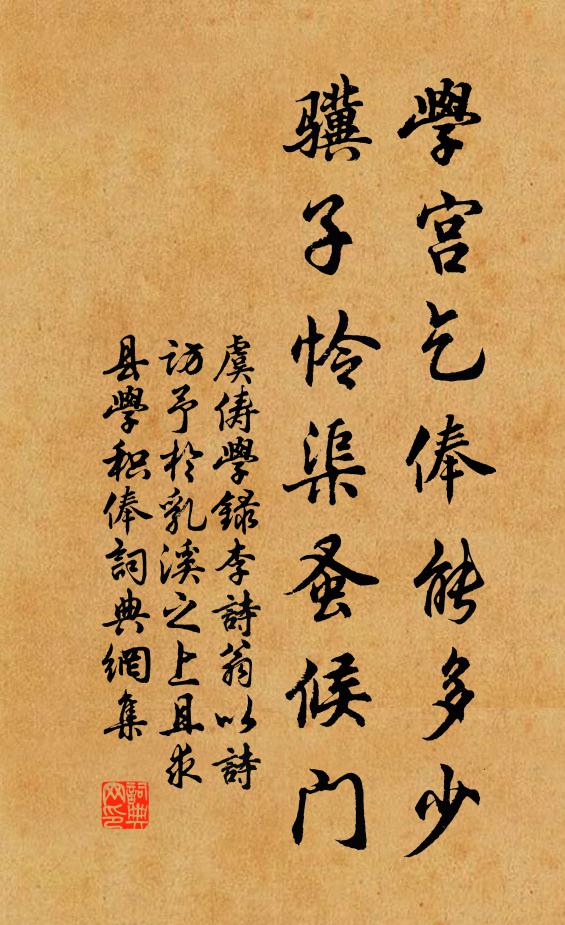 學宮乞俸能多少
骥子怜渠蚤候门
虞俦學録李詩翁以詩
访予於乳溪之上且求
县學积俸詞典網集
詞典网印